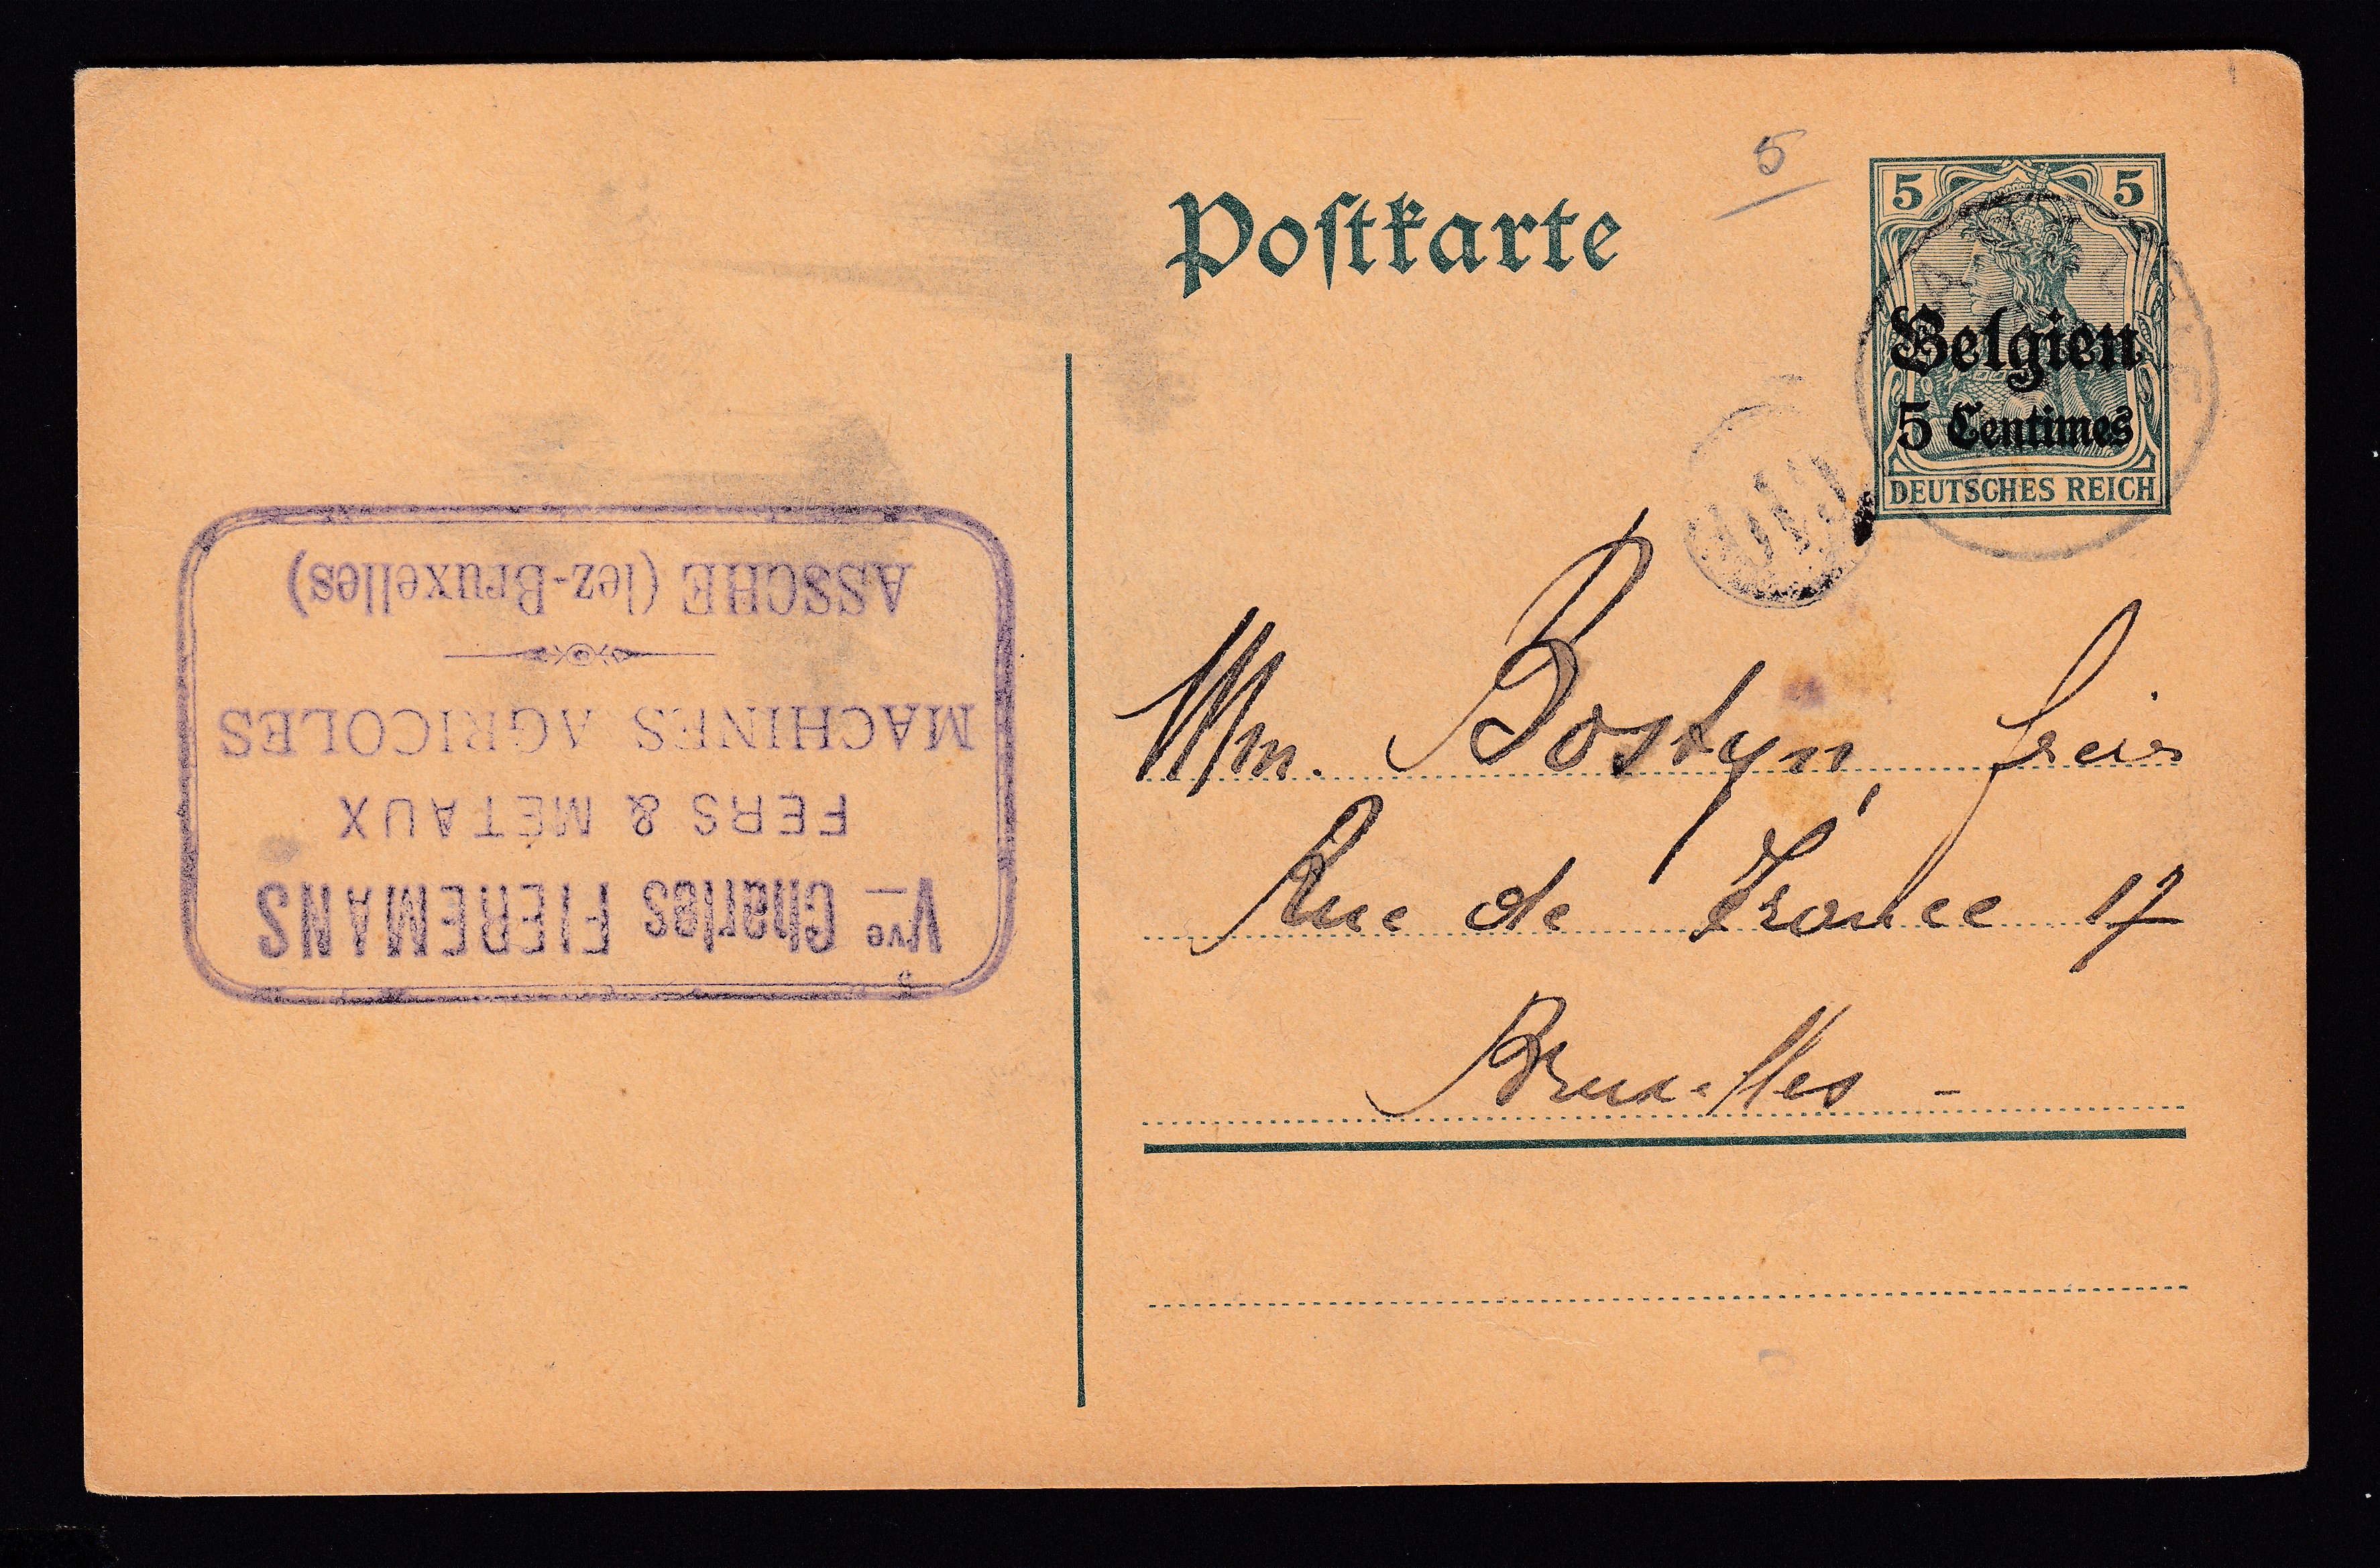 Postkarte
5
5 5
Belgien
5 Centimes
DEUTSCHES REICH
Mm. Bostyn,
Rue de France 17
Bruxelles -
Vve Charles FIEREMANS
FERS & MÉTAUX
MACHINES AGRICOLES
ASSCHE (lez-Bruxelles)